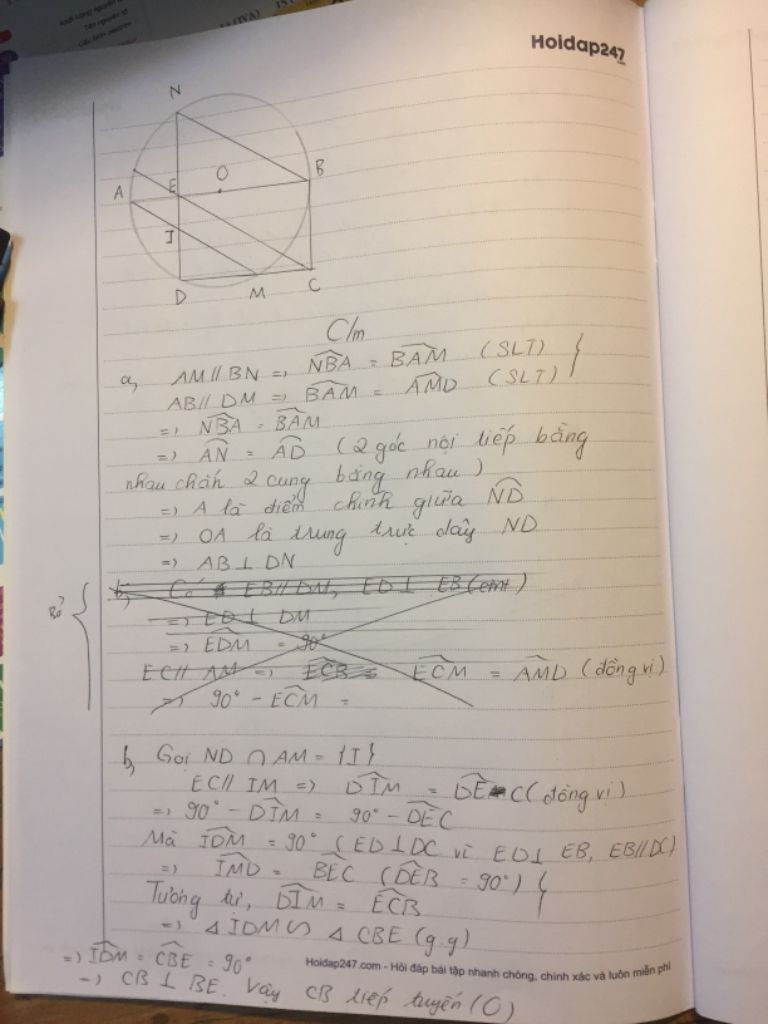 Khối lượng nguyên
Tên nguyên tố
(IVA)
Hoidap247
.com
N
O
B
A
E
I
D
M
C
C/m
a, AM // BN => \widehat{NBA} = \widehat{BAM} (SLT) }
AB // DM => \widehat{BAM} = \widehat{AMD} (SLT)
=> \widehat{NBA} = \widehat{BAM}
=> \widehat{AN} = \widehat{AD} (2 góc nội tiếp bằng
nhau chắn 2 cung bằng nhau)
=> A là điểm chính giữa \widehat{ND}
=> OA là trung trực dây ND
=> AB ⊥ DN
Bỏ { b, Có EB // DM, ED ⊥ EB (cmt)
=> ED ⊥ DM
=> \widehat{EDM} = 90°
EC // AM => \widehat{ECB} = \widehat{ECM} = \widehat{AMD} (đồng vị)
=> 90° - \widehat{ECM} =
b, Gọi ND ∩ AM = {I}
EC // IM => \widehat{DIM} = \widehat{DEC} (đồng vị)
=> 90° - \widehat{DIM} = 90° - \widehat{DEC}
Mà \widehat{IDM} = 90° (ED ⊥ DC vì ED ⊥ EB, EB // DC)
=> \widehat{IMD} = \widehat{BEC} (\widehat{DEB} = 90°) }
Tương tự, \widehat{DIM} = \widehat{ECB}
=> Δ IDM ∽ Δ CBE (g.g)
=> \widehat{IDM} = \widehat{CBE} = 90°
Hoidap247.com - Hỏi đáp bài tập nhanh chóng, chính xác và luôn miễn phí
=> CB ⊥ BE. Vậy CB tiếp tuyến (O)